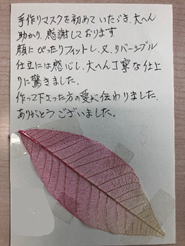 手作りマスクを初めていただき、大へん
助かり、感謝しております
顔にぴったりフィットし、又、リバーシブル
仕立には感心し、大へん丁寧な仕上
りに驚きました。
作って下さった方の愛に伝わりました。
ありがとうございました。